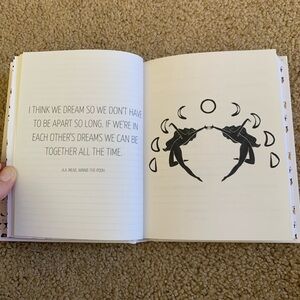 I THINK WE DREAM SO WE DON'T HAVE
TO BE APART SO LONG. IF WE'RE IN
EACH OTHER'S DREAMS WE CAN BE
TOGETHER ALL THE TIME.
A.A. MILNE, WINNIE-THE-POOH